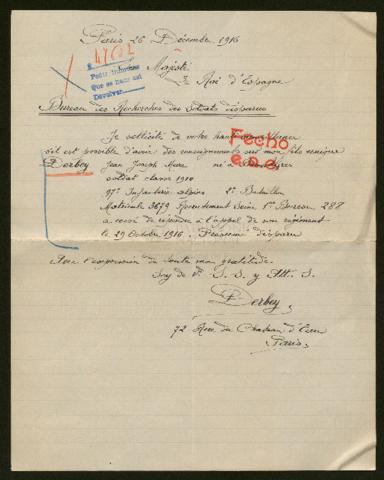 Paris 26 Décembre 1916
Majesté
Roi d'Espagne
Pedir informes
Que se hace así
Devolver
Bureau des Recherches des soldats disparus
Je sollicite de votre haute
s'il est possible d'avoir des renseignements sur mon fils unique
Fecho
Derbey Jean Joseph Marc né à
soldat classe 1910
97e Infanterie alpins Bataillon
Matricule 3679 Recrutement Seine 1er Bureau 288
a cessé de répondre à l'appel de son régiment
le 29 Octobre 1916 Présumé disparu
Avec l'expression de toute ma gratitude
Soy de V. S. S. y Att. S.
Derbey
72 Rue du Chateau d'Eau
Paris